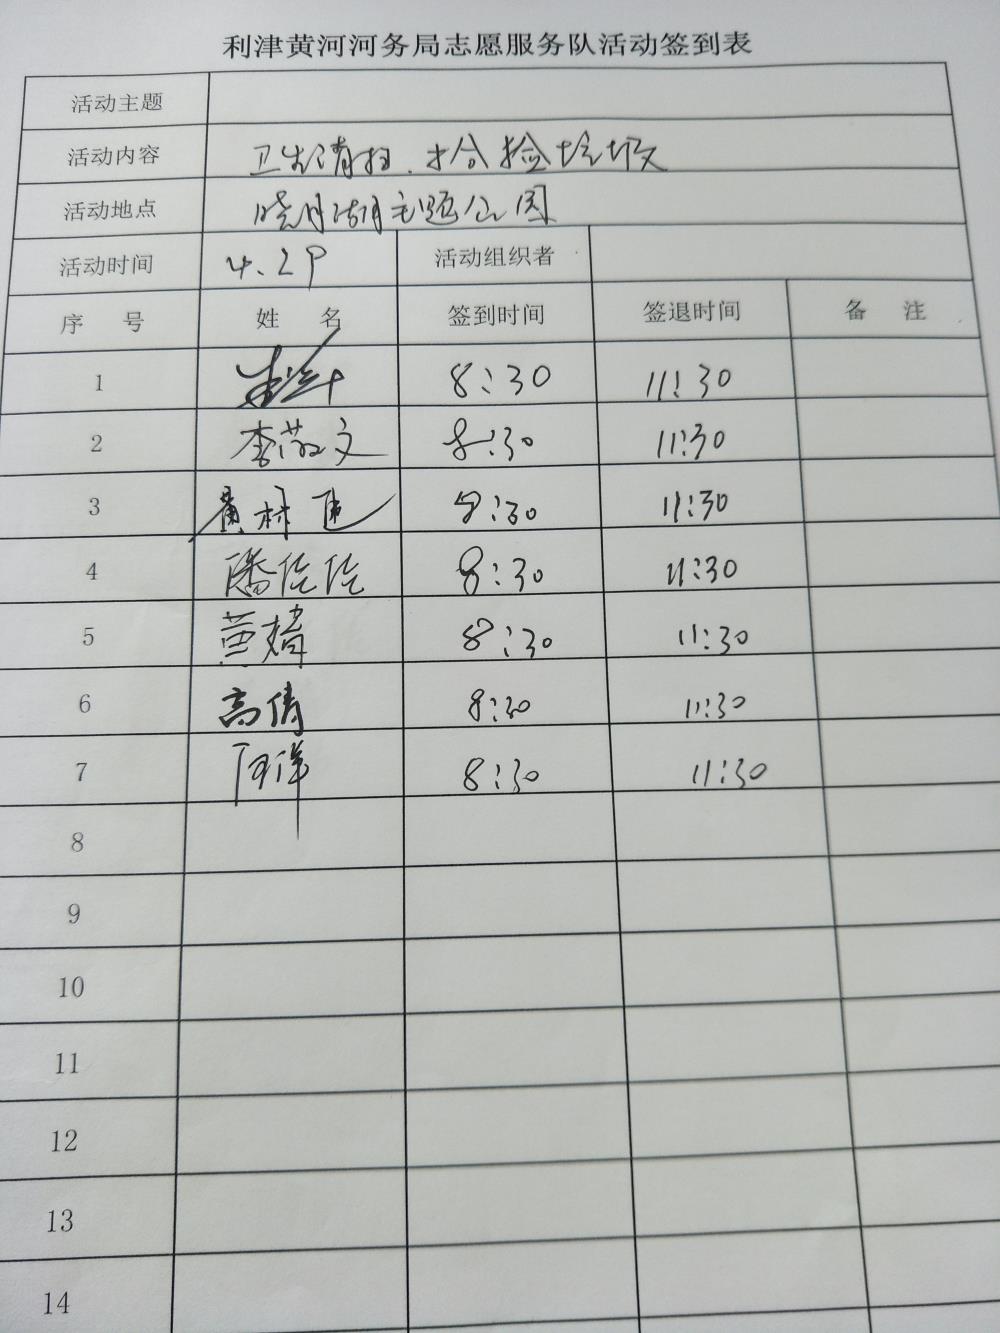 利津黄河河务局志愿服务队活动签到表
活动主题
活动内容 卫生清扫.拾捡垃圾
活动地点 晓月湖主题公园
活动时间 4.29 活动组织者
序 号 姓 名 签到时间 签退时间 备 注
1 8:30 11:30
2 李敬文 8:30 11:30
3 8:30 11:30
4 潘佗佗 8:30 11:30
5 黄婧 8:30 11:30
6 高倩 8:30 11:30
7 8:30 11:30
8
9
10
11
12
13
14